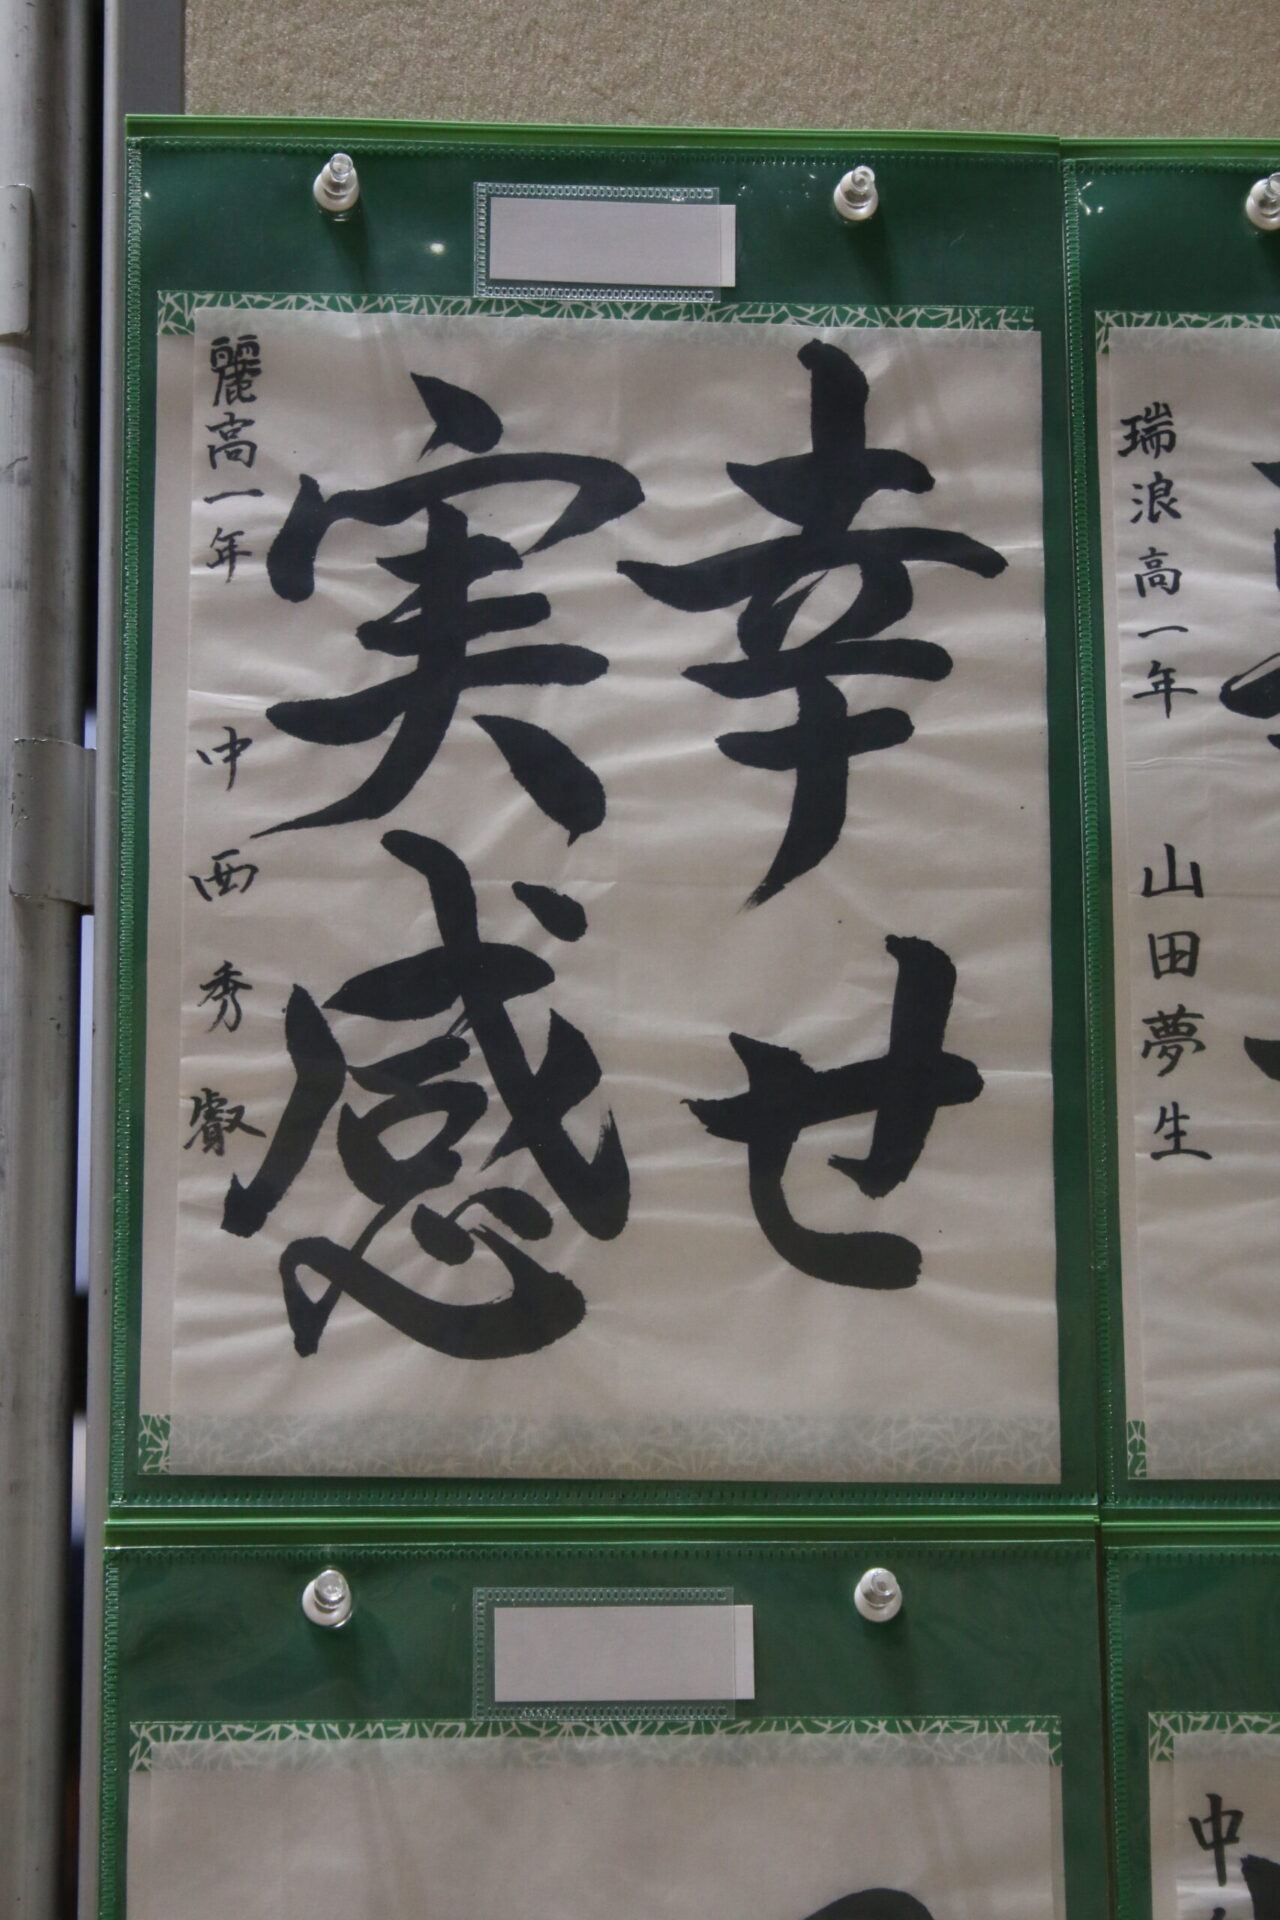 幸せ
実感
麗高一年 中西秀叡
瑞浪高一年 山田夢生
中